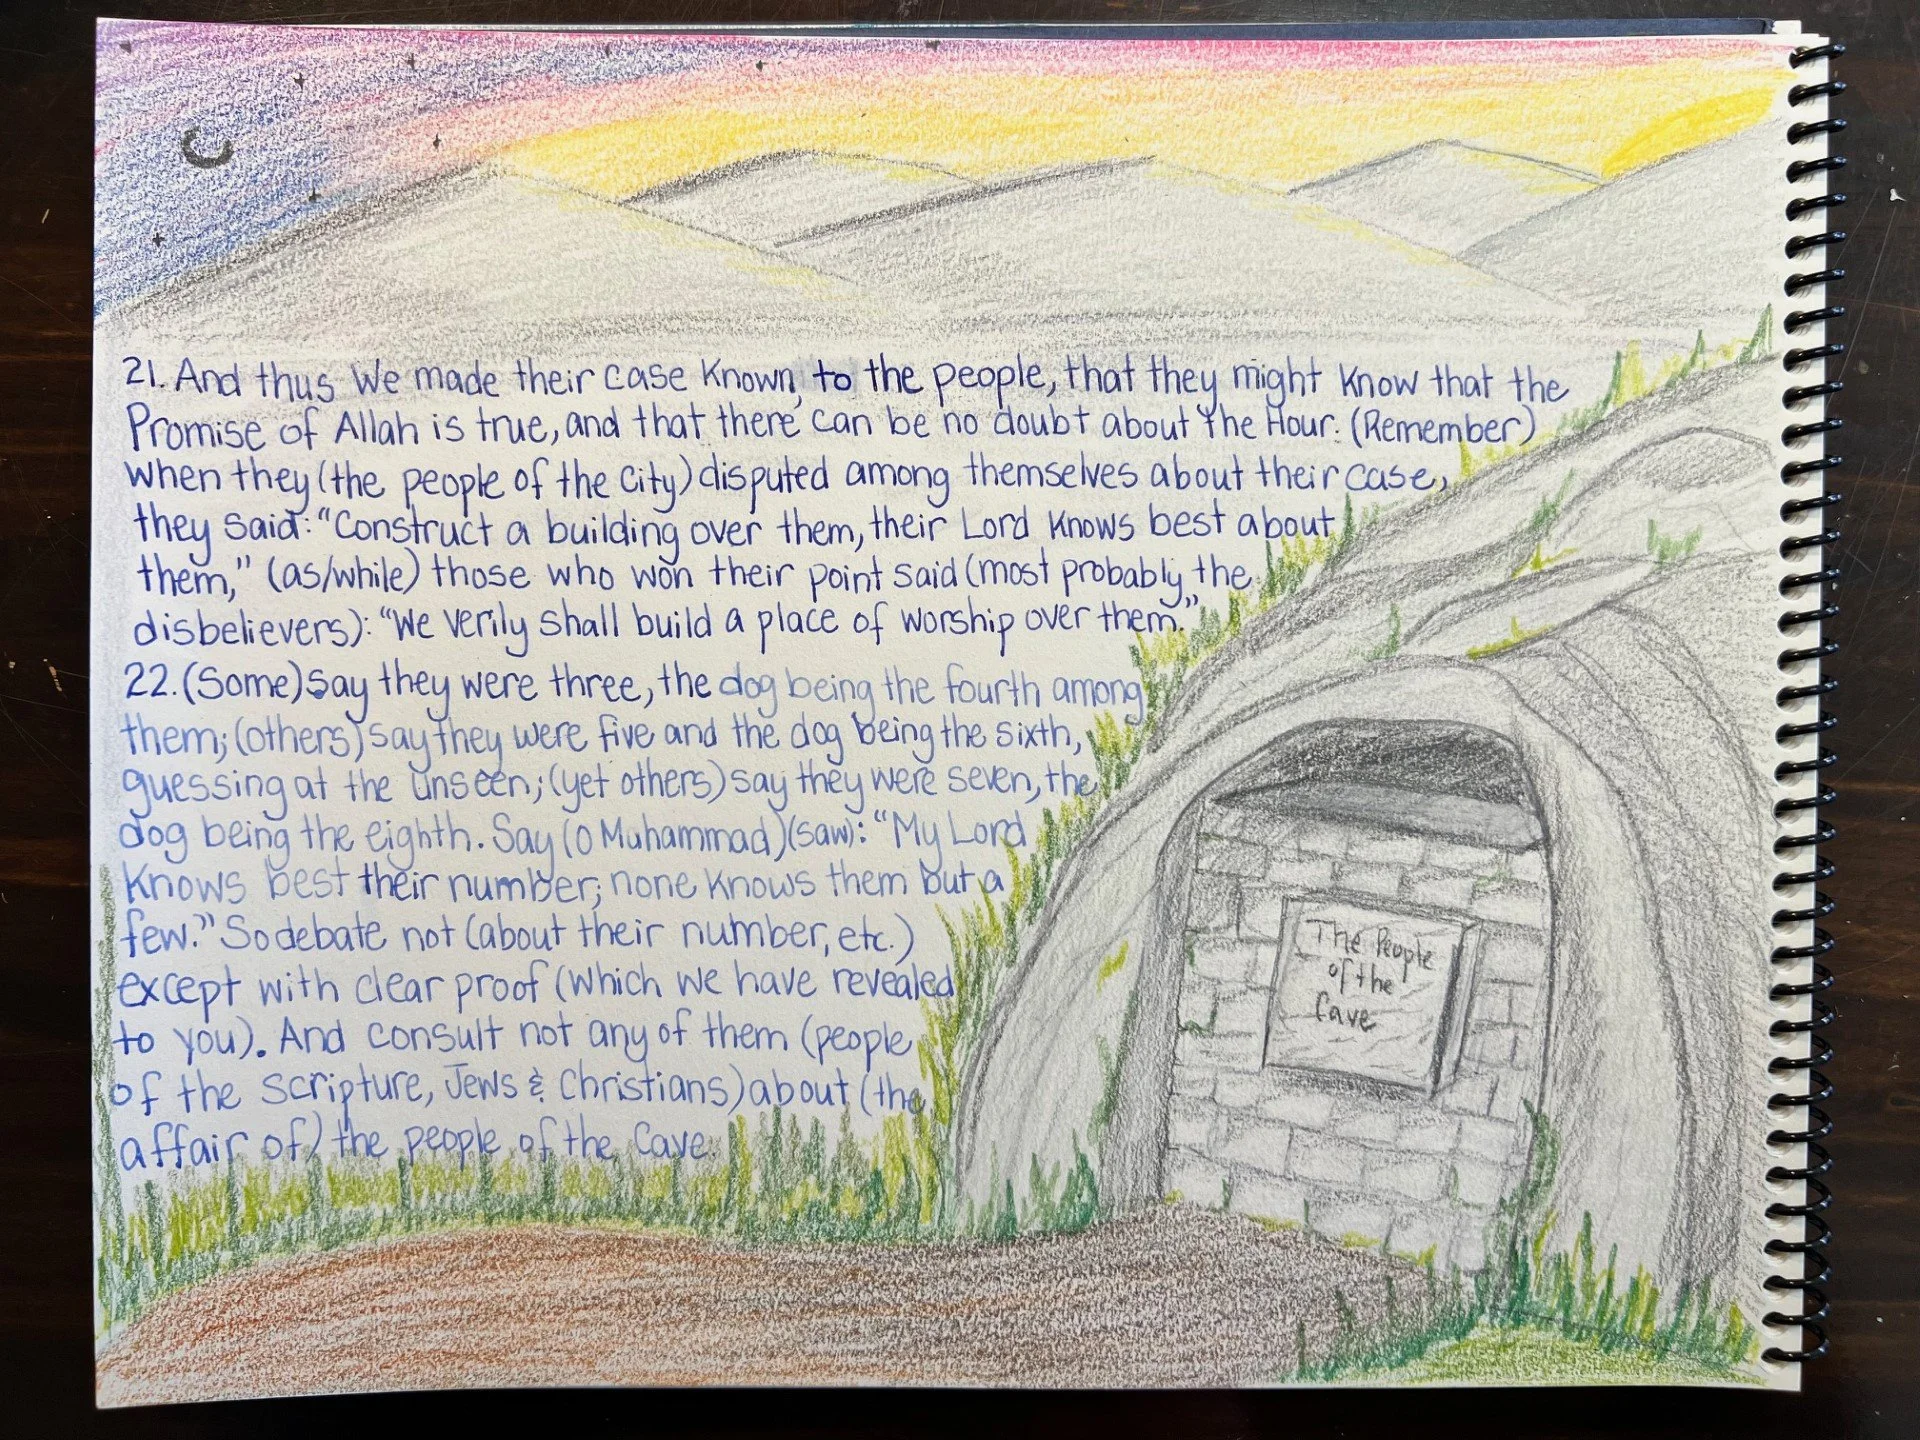 21. And thus We made their case known, to the people, that they might know that the
Promise of Allah is true, and that there can be no doubt about the Hour. (Remember)
when they (the people of the city) disputed among themselves about their case,
they said: "Construct a building over them, their Lord knows best about
them," (as/while) those who won their point said (most probably the
disbelievers): "We verily shall build a place of worship over them."
22. (Some) say they were three, the dog being the fourth among
them; (others) say they were five and the dog being the sixth,
guessing at the unseen; (yet others) say they were seven, the
dog being the eighth. Say (O Muhammad) (saw): "My Lord
knows best their number; none knows them but a
few." So debate not (about their number, etc.)
except with clear proof (which we have revealed
to you). And consult not any of them (people
of the Scripture, Jews & Christians) about (the
affair of) the people of the Cave.
The People
of the
Cave